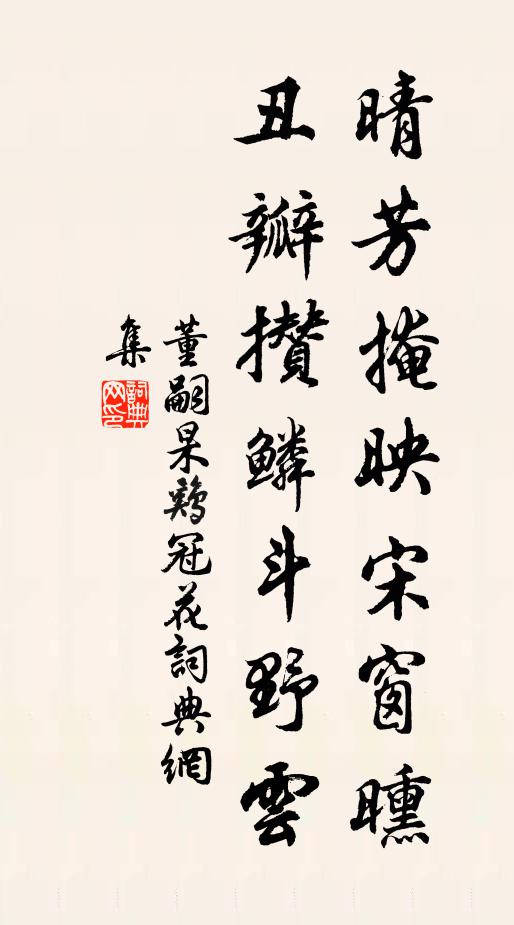 晴芳掩映宋窗曛
丑瓣攢鱗斗野雲
董嗣杲鷄冠花詞典網
集
詞典網印